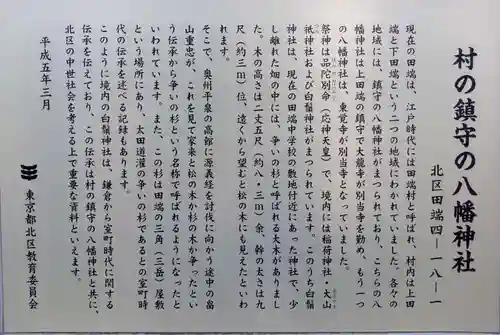 村の鎮守の八幡神社
北区田端四－一八－一
現在の田端は、江戸時代には田端村と呼ばれ、村内は上田
端と下田端という二つの地域にわかれていました。各々の
地域には、鎮守の八幡神社がまつられており、こちらの八
幡神社は上田端の鎮守で大龍寺が別当寺を勤め、もう一つ
の八幡神社は、東覚寺が別当寺となっていました。
祭神は品陀別命（応神天皇）で、境内には稲荷神社・大山
祇神社および白鬚神社がまつられています。このうち白鬚
神社は、現在の田端中学校の敷地付近にあった神社で、少
し離れた畑の中には、争いの杉と呼ばれる大木がありまし
た。木の高さは二丈五尺（約八・三ｍ）余、幹の太さは九
尺（約三ｍ）位、遠くから望むと松の木にも見えたといわ
れます。
そこで、奥州平泉の高館に源義経を討伐に向かう途中の畠
山重忠が、これを見て家来と松の木か杉の木か争ったとい
う伝承から争いの杉という名称で呼ばれるようになったと
いわれています。また、この杉は田端の三角（三岳）屋敷
という場所にあり、太田道灌の争いの杉であるとの室町時
代の伝承を述べる記録もあります。
このように境内の白鬚神社は、鎌倉から室町時代に関する
伝承を伝えており、この伝承は村の鎮守の八幡神社と共に、
北区の中世社会を考える上で重要な資料といえます。
平成五年三月
東京都北区教育委員会